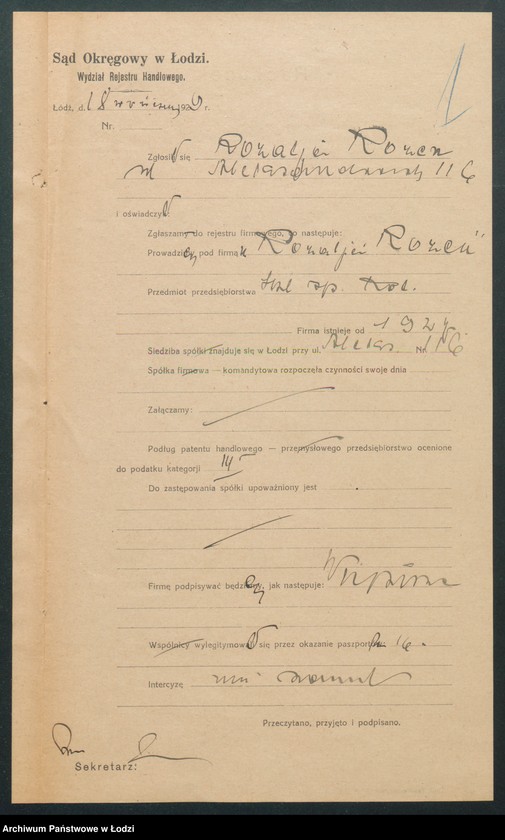 Sąd Okręgowy w Łodzi.
Wydział Rejestru Handlowego.
Łódź, d. 18 września 1929 r.
Nr.
Zgłosił się Rozalja Rozen
116
i oświadczył:
Zgłaszamy do rejestru firmowego, co następuje:
Prowadzę pod firmą „Rozalja Rozen"
Przedmiot przedsiębiorstwa skl sp. kol.
Firma istnieje od 1927
Siedziba spółki znajduje się w Łodzi przy ul. Aleks. Nr. 116
Spółka firmowa — komandytowa rozpoczęła czynności swoje dnia
Załączamy:
Podług patentu handlowego — przemysłowego przedsiębiorstwo ocenione
do podatku kategorji III
Do zastępowania spółki upoważniony jest
Firmę podpisywać będziemy, jak następuje:
Wspólnicy wylegitymował się przez okazanie paszportów 116.
Intercyzę nie zawarł
Przeczytano, przyjęto i podpisano.
Sekretarz:
Archiwum Państwowe w Łodzi